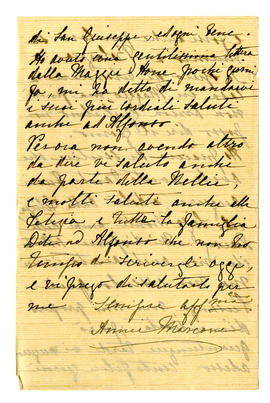 di San Giuseppe, ed ogni bene.
Ho avuto una gentilissima lettera
dalla Maggie Hone pochi giorni
fa, mi ha detto di mandarvi
i suoi più cordiali saluti
anche ad Alfonso.
Per ora non avendo altro
da dire vi saluto anche
da parte della Nellie,
e molti saluti anche alla
Letizia e tutta la famiglia
Dite ad Alfonso che non ho
tempo di scrivergli oggi,
e vi prego di salutarlo per
me. Sempre aff
Annie Marconi